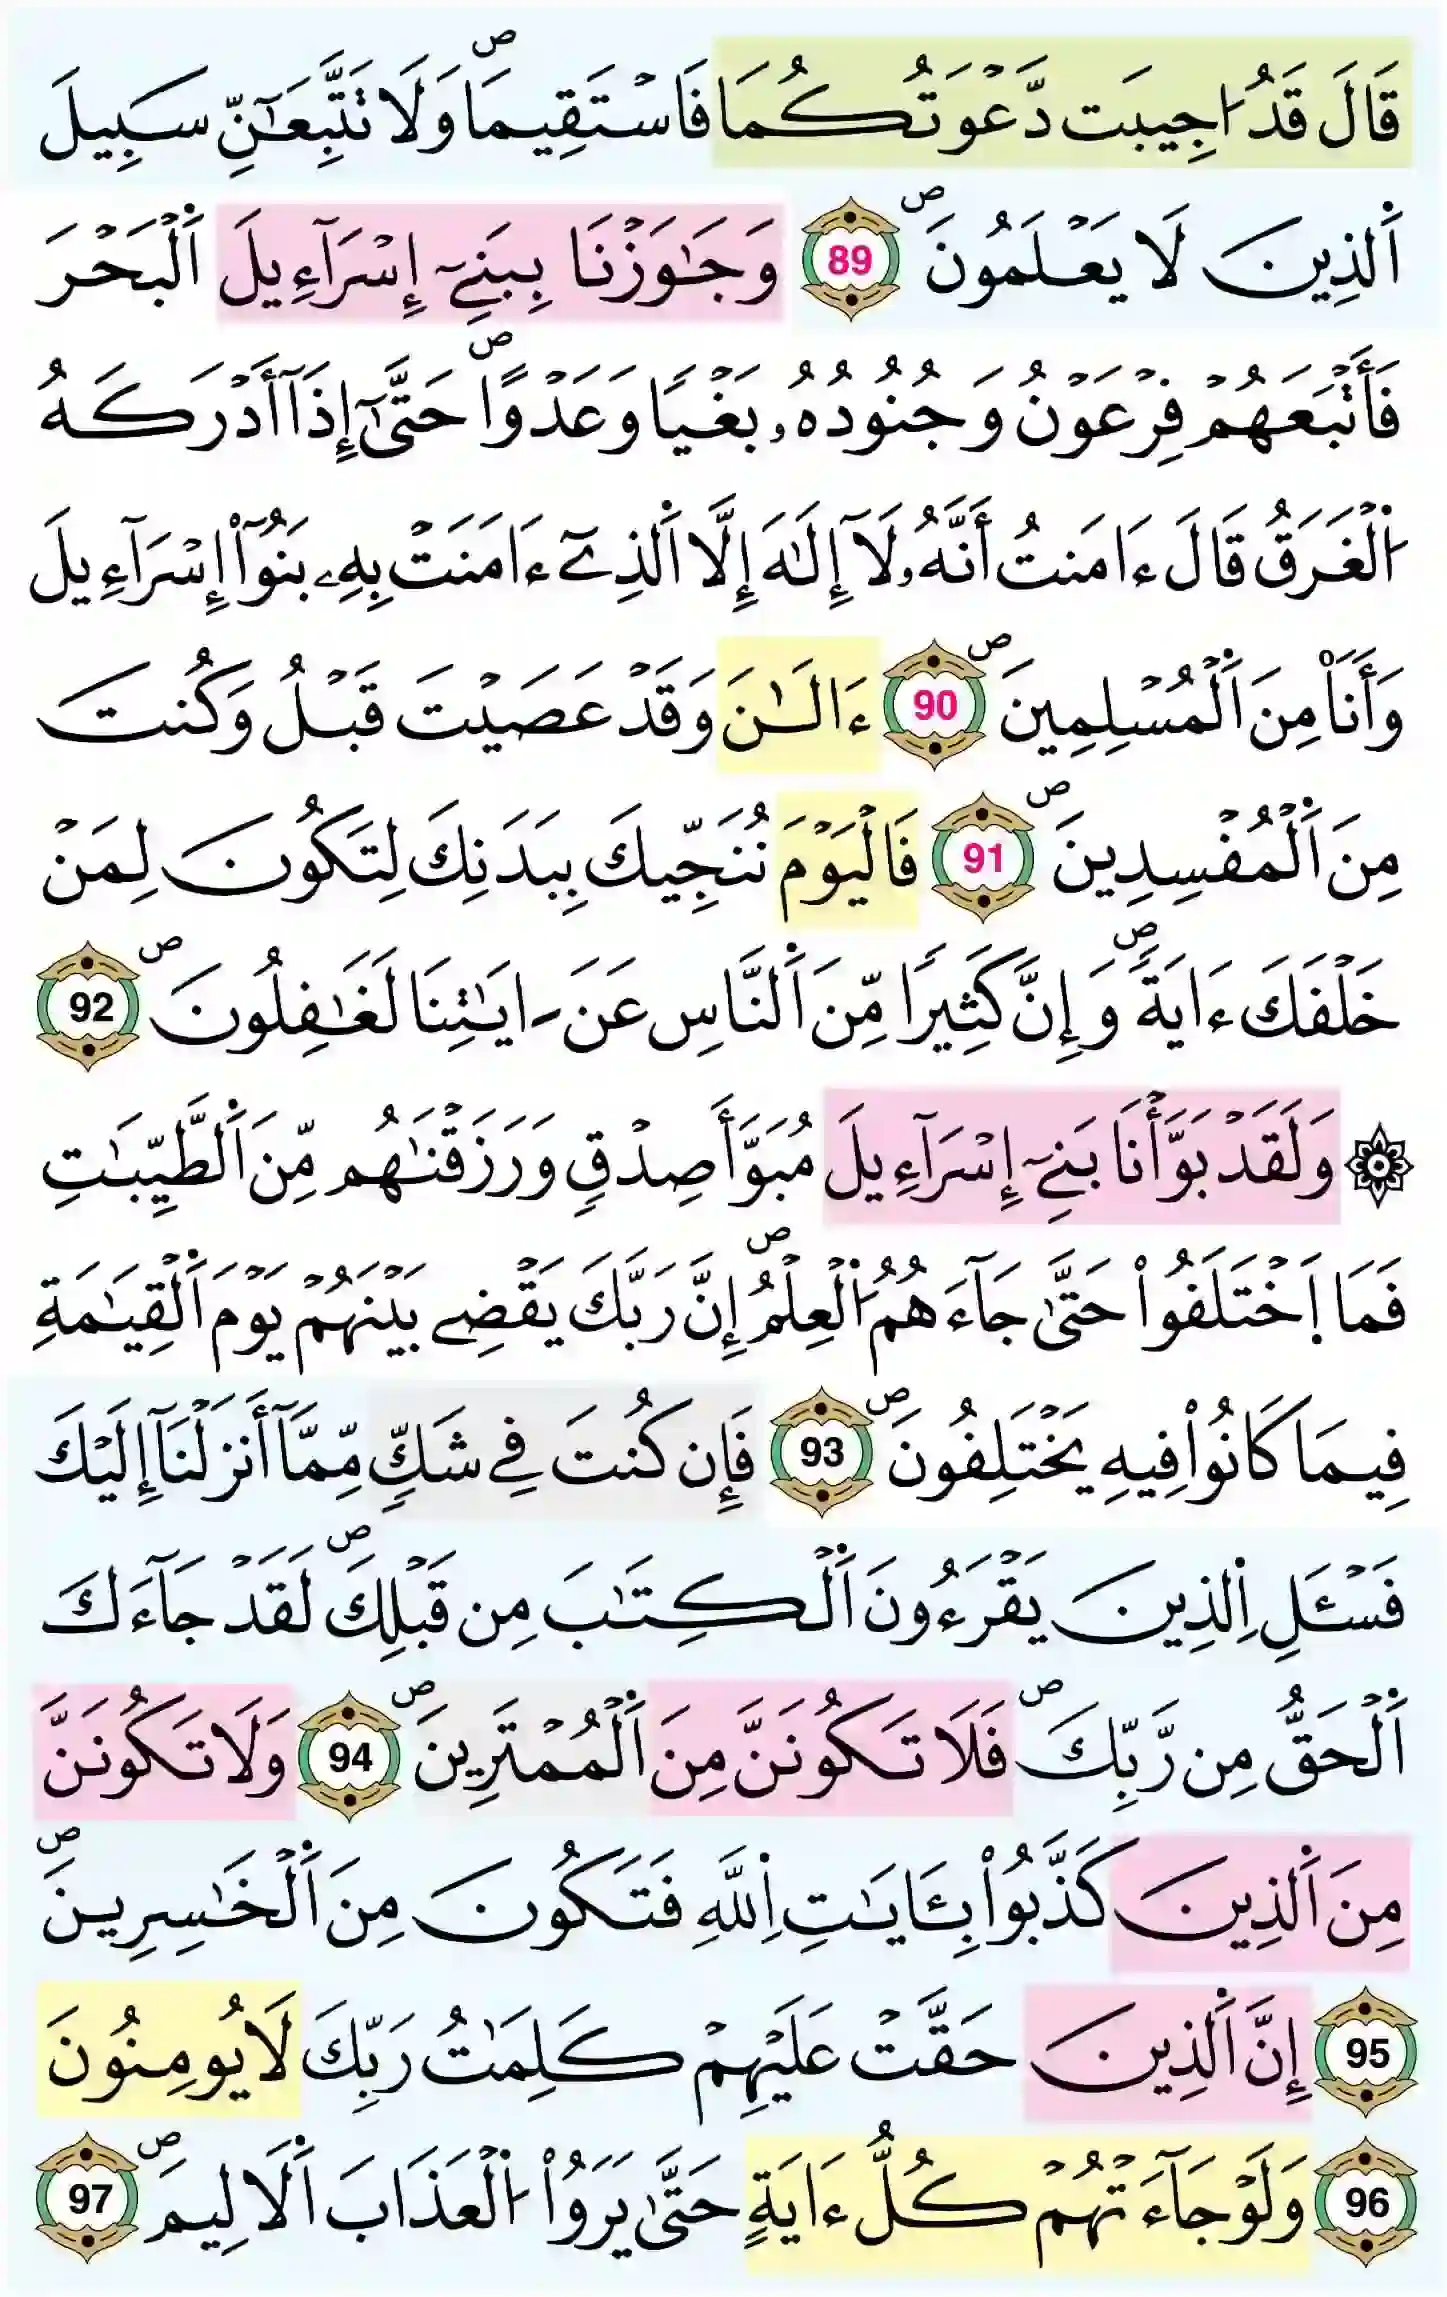 قَالَ قَدُ ا۟جِيبَت دَّعْوَتُكُمَا فَاسْتَقِيمَاۖ وَلَا تَتَّبِعَٰٓنِّ سَبِيلَ
اَ۬لذِينَ لَا يَعْلَمُونَۖ 89 وَجَٰوَزْنَا بِبَنِےٓ إِسْرَآءِيلَ اَ۬لْبَحْرَ
فَأَتْبَعَهُمْ فِرْعَوْنُ وَجُنُودُهُۥ بَغْياٗ وَعَدْواًۖ حَتَّىٰٓ إِذَآ أَدْرَكَهُ
اُ۬لْغَرَقُ قَالَ ءَامَنتُ أَنَّهُۥ لَآ إِلَٰهَ إِلَّا اَ۬لذِےٓ ءَامَنَتْ بِهِۦ بَنُوٓاْ إِسْرَآءِيلَ
وَأَنَا۠ مِنَ اَ۬لْمُسْلِمِينَۖ 90 ءَالَٰنَ وَقَدْ عَصَيْتَ قَبْلُ وَكُنتَ
مِنَ اَ۬لْمُفْسِدِينَۖ 91 فَالْيَوْمَ نُنَجِّيكَ بِبَدَنِكَ لِتَكُونَ لِمَنْ
خَلْفَكَ ءَايَةٗۖ وَإِنَّ كَثِيراٗ مِّنَ اَ۬لنَّاسِ عَنَ اٰيَٰتِنَا لَغَٰفِلُونَۖ 92
۞ وَلَقَدْ بَوَّأْنَا بَنِےٓ إِسْرَآءِيلَ مُبَوَّأَ صِدْقٖ وَرَزَقْنَٰهُم مِّنَ اَ۬لطَّيِّبَٰتِ
فَمَا اَ۪خْتَلَفُواْ حَتَّىٰ جَآءَهُمُ اُ۬لْعِلْمُۖ إِنَّ رَبَّكَ يَقْضِے بَيْنَهُمْ يَوْمَ اَ۬لْقِيَٰمَةِ
فِيمَا كَانُواْ فِيهِ يَخْتَلِفُونَۖ 93 فَإِن كُنتَ فِے شَكّٖ مِّمَّآ أَنزَلْنَآ إِلَيْكَ
فَسْـَٔلِ اِ۬لذِينَ يَقْرَءُونَ اَ۬لْكِتَٰبَ مِن قَبْلِكَۖ لَقَدْ جَآءَكَ
اَ۬لْحَقُّ مِن رَّبِّكَۖ فَلَا تَكُونَنَّ مِنَ اَ۬لْمُمْتَرِينَۖ 94 وَلَا تَكُونَنَّ
مِنَ اَ۬لذِينَ كَذَّبُواْ بِـَٔايَٰتِ اِ۬للَّهِ فَتَكُونَ مِنَ اَ۬لْخَٰسِرِينَۖ
95 إِنَّ اَ۬لذِينَ حَقَّتْ عَلَيْهِمْ كَلِمَٰتُ رَبِّكَ لَا يُومِنُونَ
96 وَلَوْ جَآءَتْهُمْ كُلُّ ءَايَةٍ حَتَّىٰ يَرَوُاْ اُ۬لْعَذَابَ اَ۬لَالِيمَۖ 97